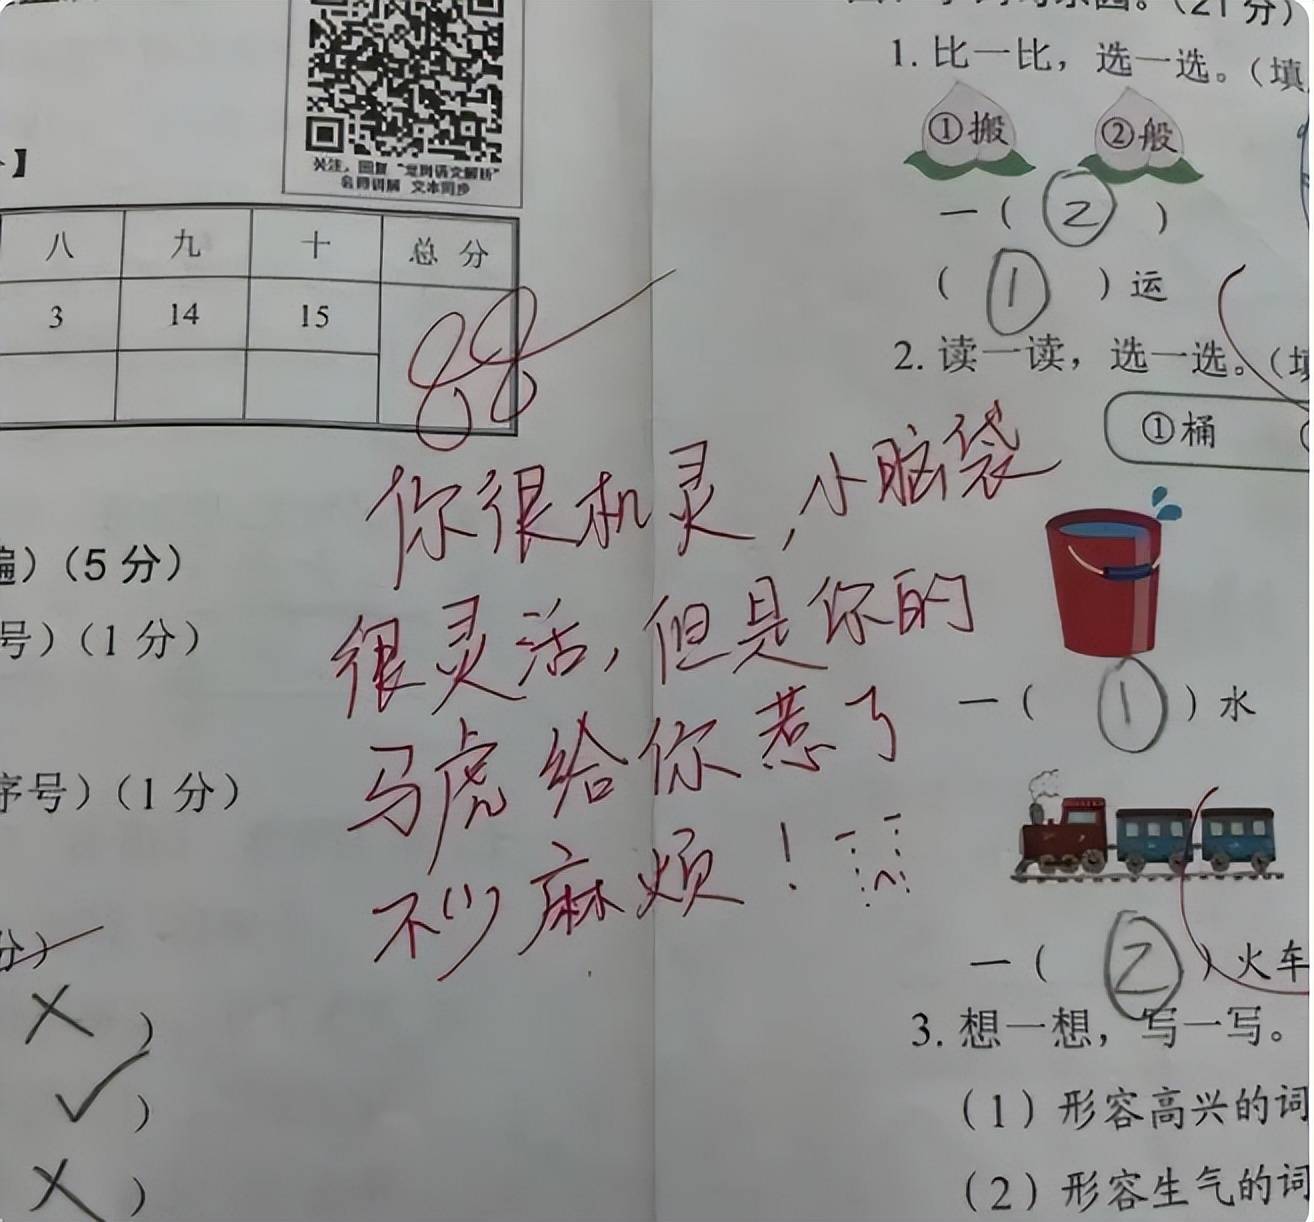 关注，回复“
名师讲解 文本同步
】
八 九 十 总 分
3 14 15
88
你很机灵，小脑袋
很灵活，但是你的
马虎给你惹了
不少麻烦！
遍）（5 分）
号）（1 分）
序号）（1 分）
分）
× ）
✓ ）
× ）
（21 分）
1. 比一比，选一选。（填
①搬 ②般
一（ ② ）
（ ① ）运
2. 读一读，选一选。（填
①桶
一（ ① ）水
一（ ② ）火车
3. 想一想，写一写。
（1）形容高兴的词
（2）形容生气的词